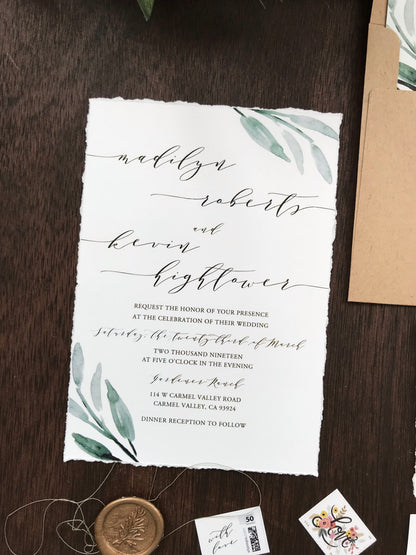 madilyn
roberts
and
kevin
hightower
REQUEST THE HONOR OF YOUR PRESENCE
AT THE CELEBRATION OF THEIR WEDDING
Saturday, the twenty third of March
TWO THOUSAND NINETEEN
AT FIVE O'CLOCK IN THE EVENING
Gardener Ranch
114 W CARMEL VALLEY ROAD
CARMEL VALLEY, CA 93924
DINNER RECEPTION TO FOLLOW
with
love
50
Love